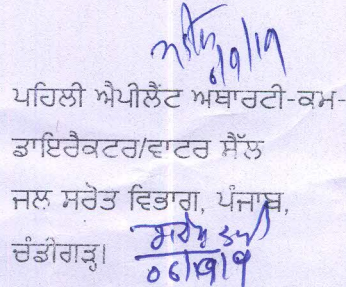 6/9/19
ਪਹਿਲੀ ਐਪੀਲੈਂਟ ਅਥਾਰਟੀ-ਕਮ-
ਡਾਇਰੈਕਟਰ/ਵਾਟਰ ਸੈੱਲ
ਜਲ ਸਰੋਤ ਵਿਭਾਗ, ਪੰਜਾਬ,
ਚੰਡੀਗੜ੍ਹ।